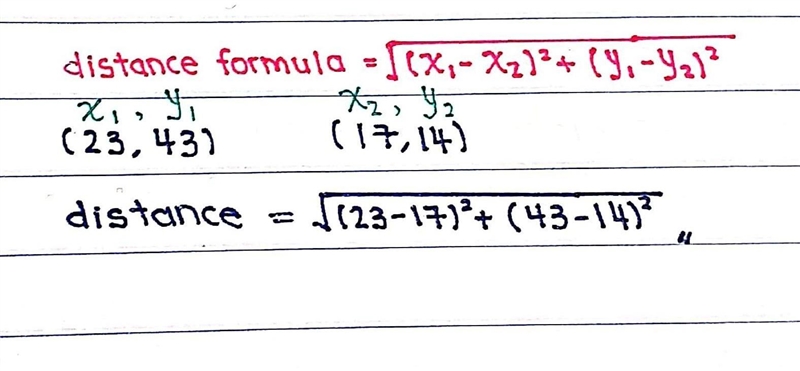 distance formula = √(x₁ - x₂)² + (y₁ - y₂)²
x₁, y₁ x₂, y₂
(23, 43) (17, 14)
distance = √(23-17)² + (43-14)² 〃